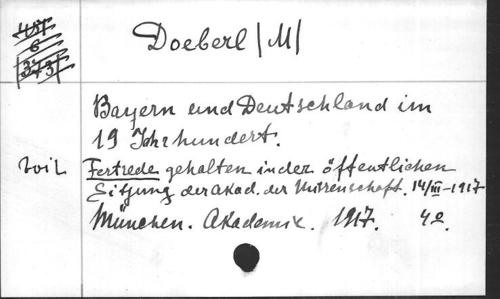 451
6
373
Doeberl /M/
Bayern und Deutschland im
19 Jhrhundert.
Fertrede gehalten in der öffentlichen
Sitzung der Akad. der Wissenschaft. 14/III-1917
München. Akademie. 1917. 4º.